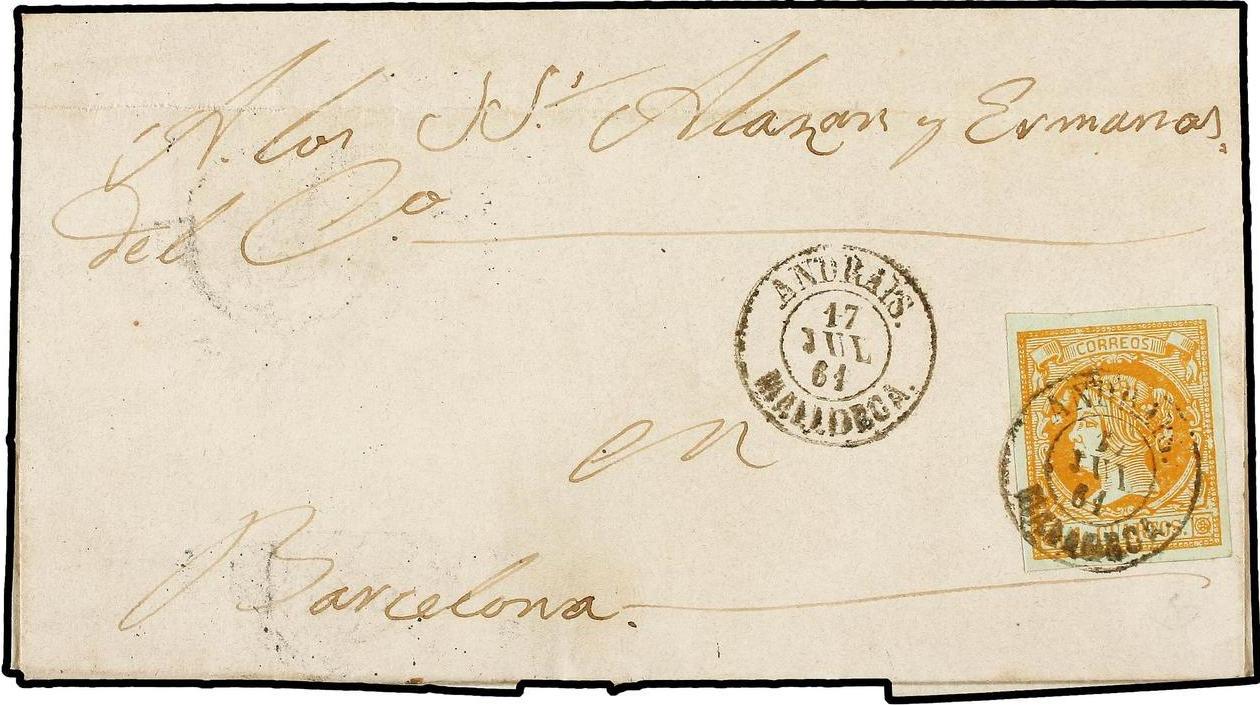 A los SS.ˢ Alazan y Ermanos
del C.º
ANDRAIS.
17
JUL
61
MALLORCA.
CORREOS
ANDRAIS.
JUL
61
en
Barcelona.